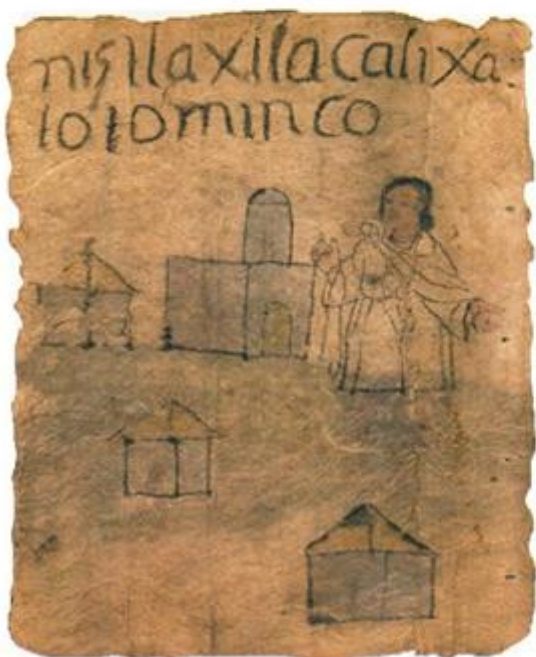 nis llaxilacalixa
totominco